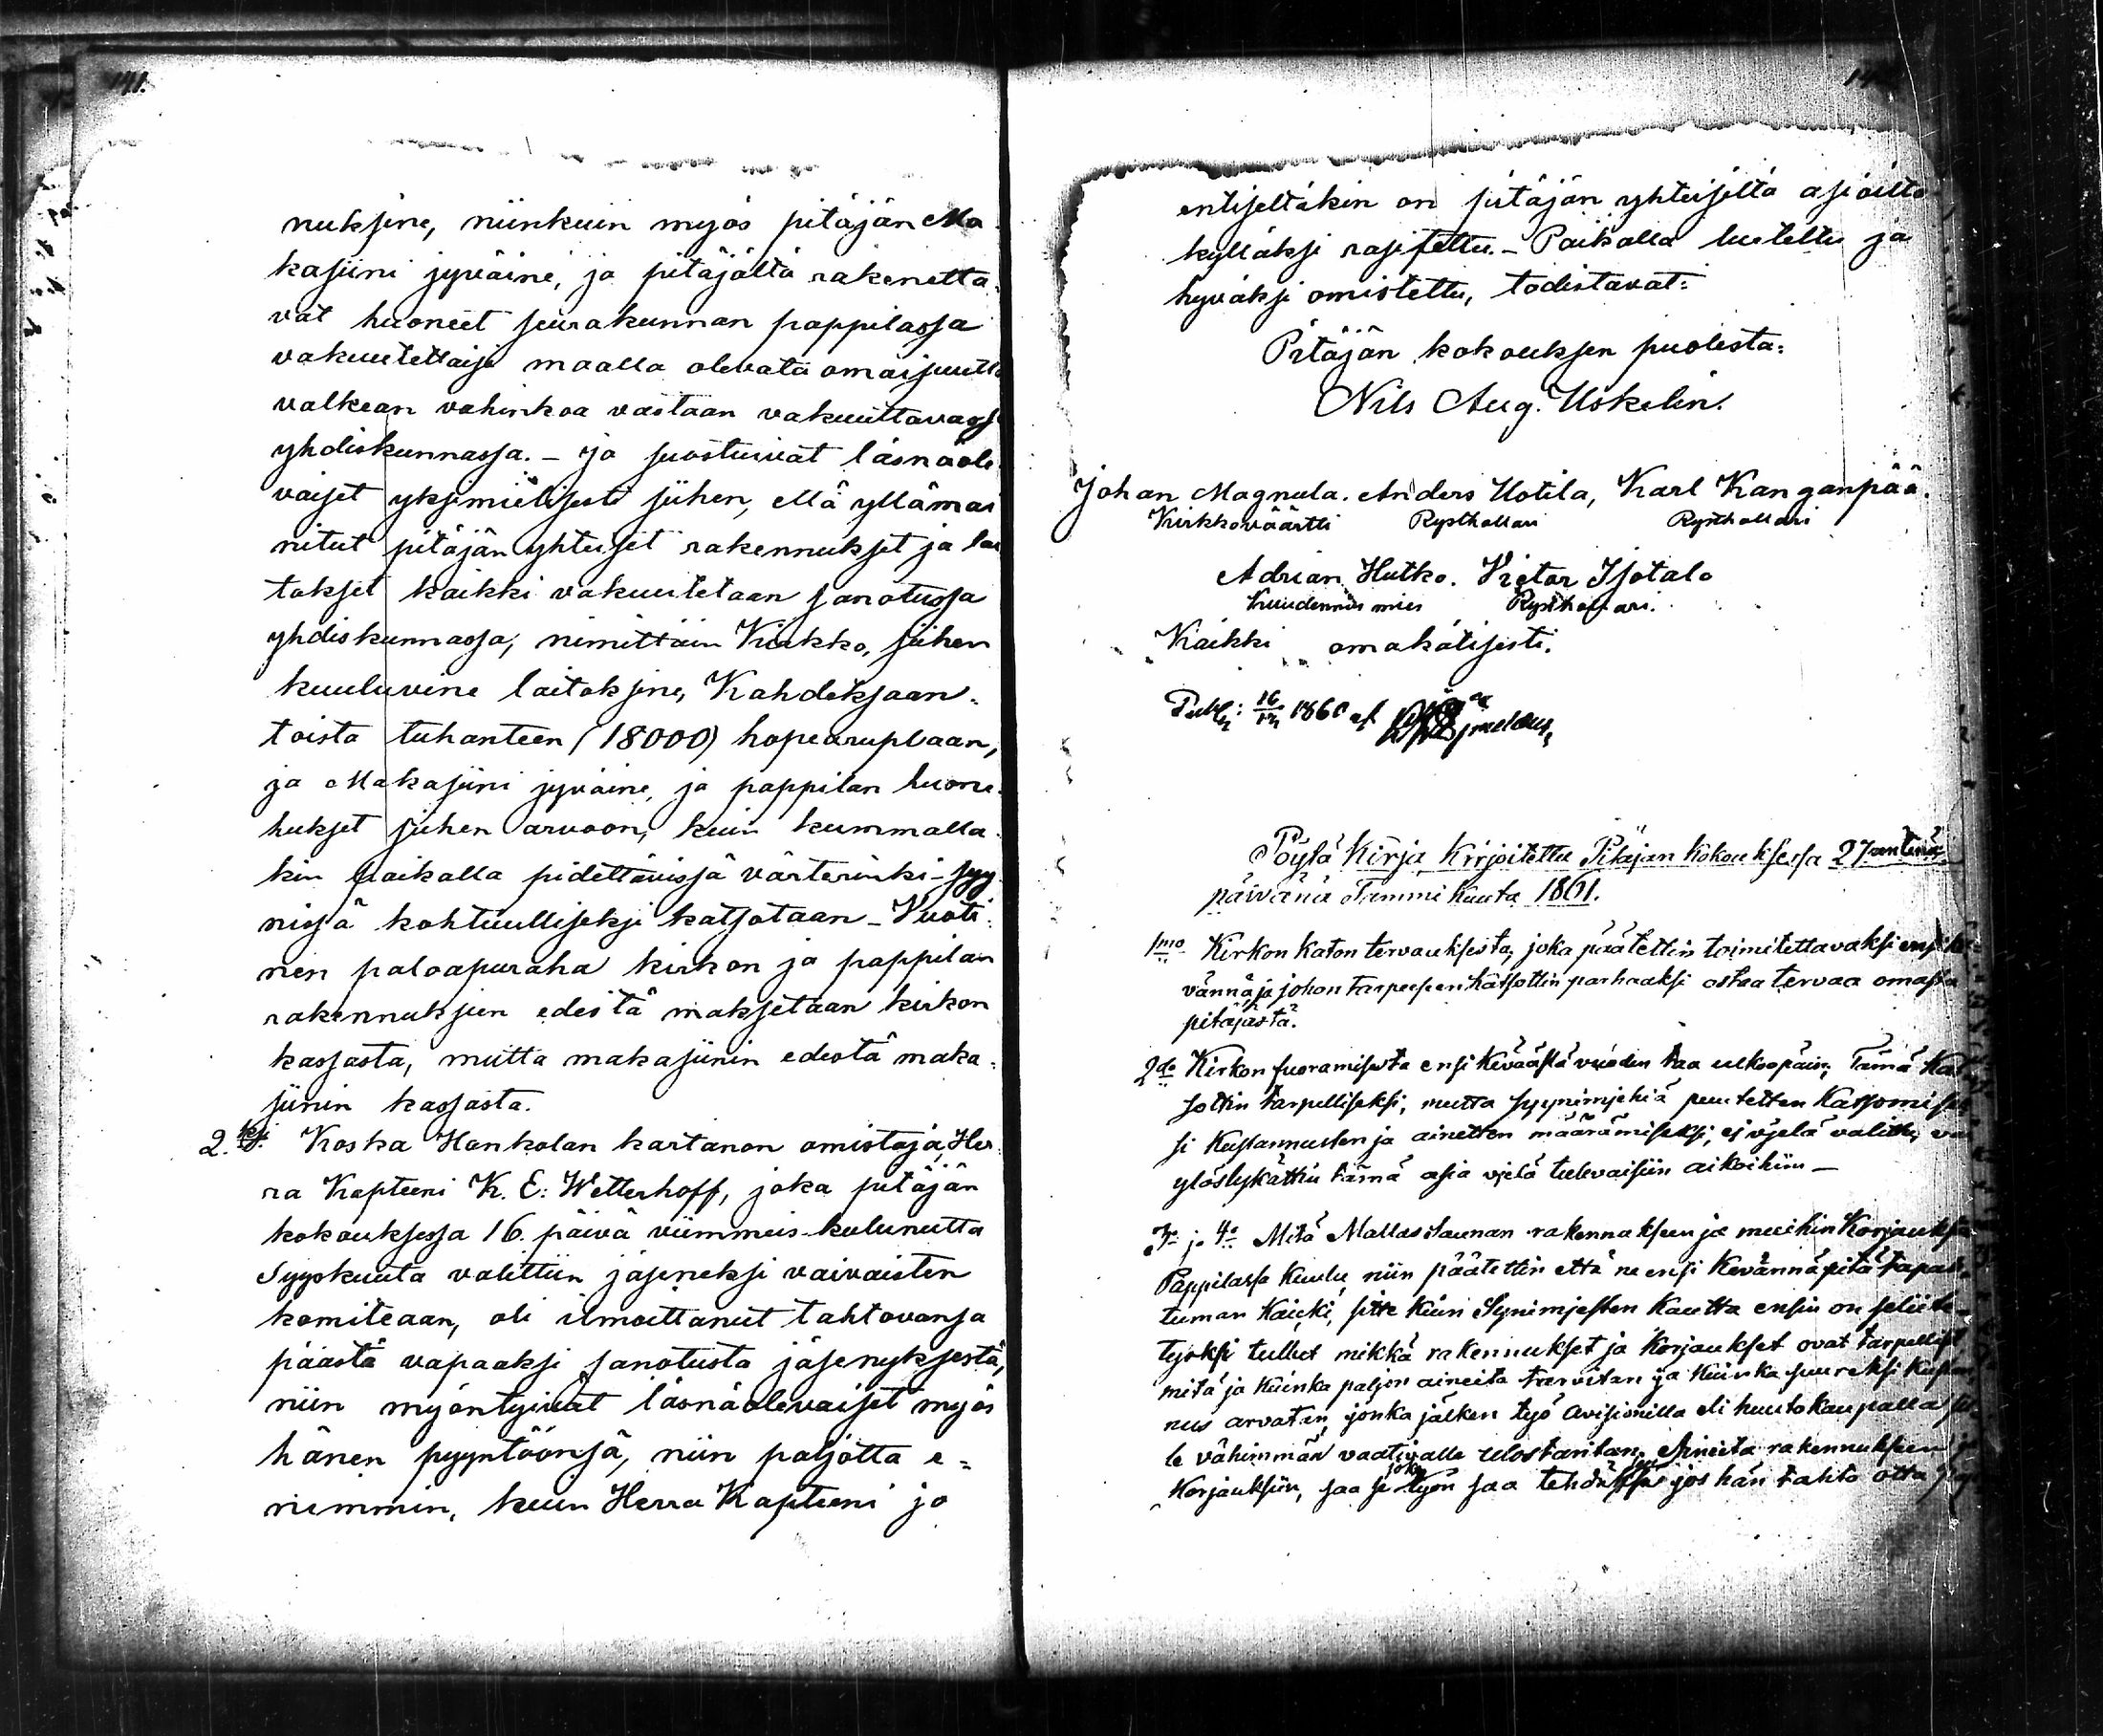 141.
nuksine, niinkuin myös pitäjän Ma
kasiini jyväine, ja pitäjältä rakenetta
vat huoneet seurakunnan pappilassa
vakuutettaisi maalla olevata omaisuutta
valkean vahinkoa vastaan vakuuttavass
yhdiskunnassa. - ja suostuivat läsnäole
vaiset yksimielisesti siihen, että yllämai
nitut pitäjän yhteiset rakennukset ja lai
tokset kaikki vakuutetaan sanotussa
yhdiskunnassa, nimittäin Kirkko, siihen
kuuluvine laitoksine, Kahdeksaan-
toista tuhanteen (18000) hopearuplaan,
ja Makasiini jyväine, ja pappilan huone-
hukset siihen arvoon, kuin kummalla-
kin paikalla pidettävissä värterinki-syy
nissä kohtuulliseksi katsotaan - Vuoti-
nen paloapuraha kirkon ja pappilan
rakennuksien edestä maksetaan kirkon
kassasta, mutta makasiinin edestä maka-
siinin kassasta.
2.ksi Koska Hankolan kartanon omistaja, Her-
ra Kapteeni K. E: Wetterhoff, joka pitäjän
kokouksessa 16. päivä viimmeis-kulunutta
Syyskuuta valittiin jäseneksi vaivaisten
komiteaan, oli ilmoittanut tahtovansa
päästä vapaaksi sanotusta jäsenyksestä,
niin myöntyivät läsnäolevaiset myös
hänen pyyntöönsä, niin paljotta e-
nemmin, kuin Herra Kapteeni jo
entiseltäkin on pitäjän yhteisiltä asioilta
kylläksi rasitettu. - Paikalla luetettu ja
hyväksi omistettu, todistavat:
Pitäjän kokouksen puolesta:
Nils Aug. Uskelin.
Johan Magnula. Anders Uotila, Karl Kanganpää.
Kirkkoväärtti Rysthollari Rysthollari
Adrian Hutko. Victor Isotalo
Kuudennus mies Rysthollari.
Kaikki omakätisesti.
Publ: 16/12 1860 af
Pöytä Kirja Kirjoitettu Pitäjan Kokouksessa 27äntenä
päivänä Tammi Kuuta 1861.
1mo Kirkon Katon tervauksesta, joka päätettin toimitettavaksi ensi ke-
vännä ja johon tarpeesen Katsottin parhaaksi ostaa tervaa omasta
pitäjästä.
2do Kirkon suoramisesta ensi Keväästä vuoden taa ulkoopäin; Tämä Kat
sottin tarpelliseksi, mutta syynimjehiä puutetten Kassomise
si Kustannusten ja ainetten määrämiseksi, ej vjelä valittu, va
ylöslykättiin tämä asia vjelä tulevaisiin aikoihiin -
3o ja 4o Mitä Mallassaunan rakennukseen ja muihin Korjauksin
Pappilassa Kuulu, niin päätettin että ne ensi Kevännä pitä tapah-
tuman Kaicki, sitte Kuin Synimjesten Kautta ensin on selite-
tyksi tullut mikkä rakennukset ja Korjaukset ovat tarpelliset
mitä ja Kuinka paljon aineita tarvitan ja Kuinka suureksi Kustan
nus arvatan, jonka jälken työ avisionilla eli huutokaupalla sil
le vähimmän vaativalle ulostaritan. Aineita rakennukseen ja
Korjauksiin, saa se joka työn saa tehdäksen jos hän tahto otta